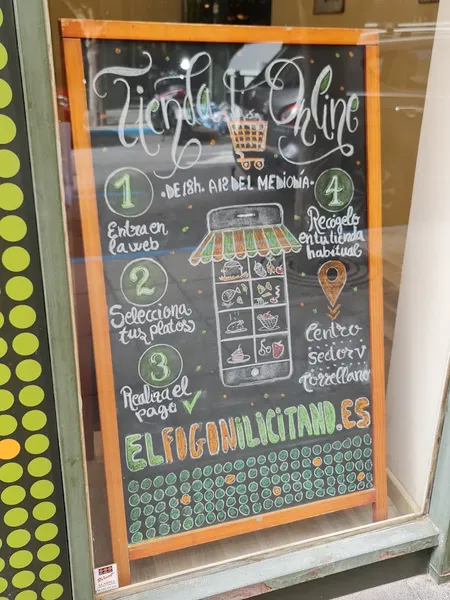 Tienda Online
·DE 18h. A 12 DEL MEDIODÍA·
1
Entra en
la web
2
Selecciona
tus platos
3
Realiza el
pago
4
Recógelo
en tu tienda
habitual
Centro
Sector V
Torrellano
ELFOGONILICITANO.ES